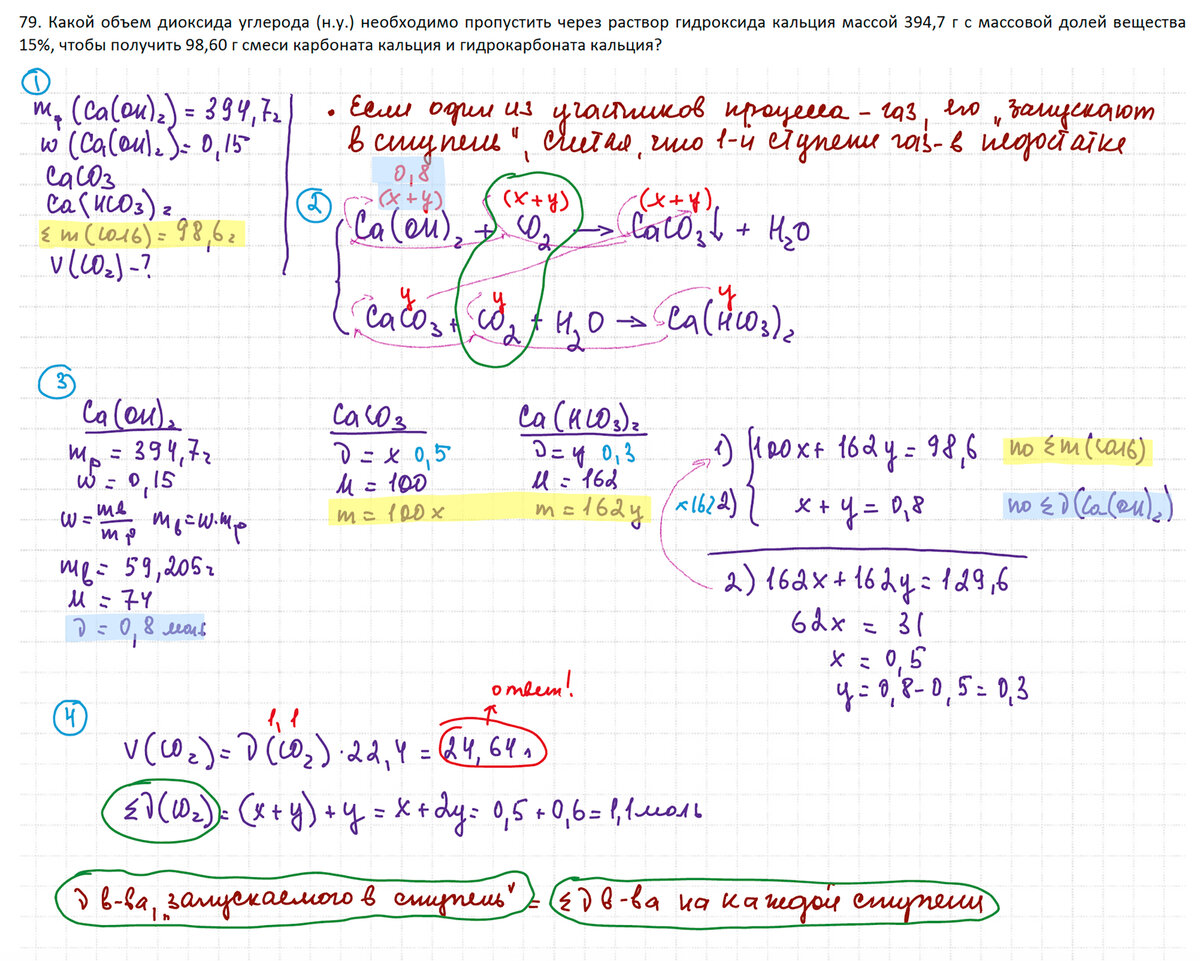 79. Какой объем диоксида углерода (н.у.) необходимо пропустить через раствор гидроксида кальция массой 394,7 г с массовой долей вещества
15%, чтобы получить 98,60 г смеси карбоната кальция и гидрокарбоната кальция?
1
mр (Ca(OH)₂) = 394,7г
w (Ca(OH)₂) = 0,15
CaCO3
Ca(HCO3)₂
Σ m(солей) = 98,6г
V(CO₂) - ?
• Если один из участников процесса – газ, его „запускают
в ступень", считая, что 1-й ступени газ - в недостатке
2
0,8
(x+y) (x+y) (x+y)
Ca(OH)₂ + CO₂ → CaCO₃↓ + H₂O
y y y
CaCO₃ + CO₂ + H₂O → Ca(HCO₃)₂
3
Ca(OH)₂
mр = 394,7г
w = 0,15
w = mв/mр mв = w·mр
mв = 59,205г
M = 74
ν = 0,8 моль
CaCO3
ν = x 0,5
M = 100
m = 100x
Ca(HCO₃)₂
ν = y 0,3
M = 162
m = 162y
1) 100x + 162y = 98,6 по Σ m(солей)
×162 2) x + y = 0,8 по Σ ν(Ca(OH)₂)
2) 162x + 162y = 129,6
62x = 31
x = 0,5
y = 0,8 - 0,5 = 0,3
4
ответ!
1,1
V(CO₂) = ν(CO₂)·22,4 = 24,64л
Σν(CO₂) = (x+y) + y = x + 2y = 0,5 + 0,6 = 1,1 моль
ν в-ва, „запускаемого в ступень" = Σν в-ва на каждой ступени